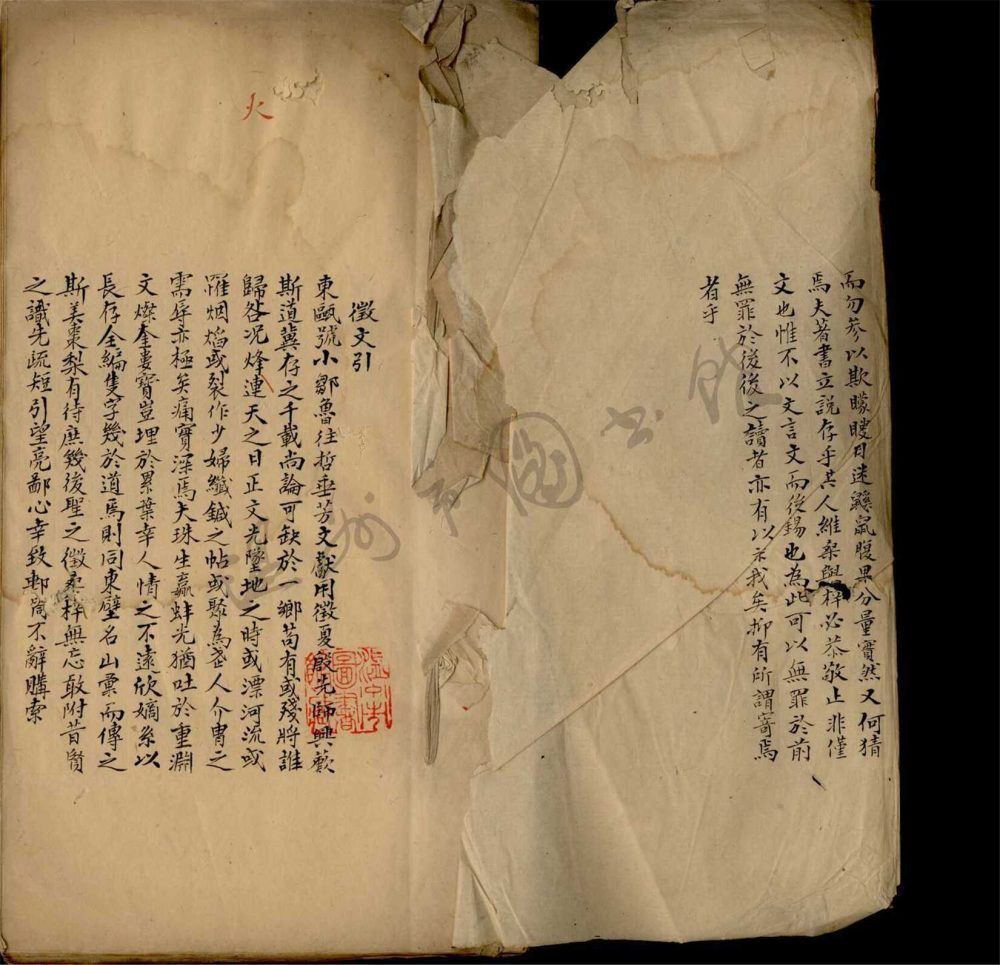 而勿參以欺矇瞍目迷鼷鼠腹果分量實然又何猜
焉夫著書立說存乎其人維桑與梓必恭敬止非僅
文也惟不以文言文而後錫也為此可以無罪於前
無罪於後後之讀者亦有以示我矣抑有所謂寄焉
者乎
徵文引
東甌號小鄒魯往哲垂芳文獻用徵夏殷先師興歎
斯道冀存之千載尚論可缺於一鄉苟有或殘將誰
歸咎况烽連天之日正文光墜地之時或漂河流或
罹烟焰或裂作少婦纖鍼之帖或聚為老人介冑之
需辱亦極矣痛實深焉夫珠生蠃蚌光猶吐於重淵
文燦奎婁寶豈埋於累葉幸人情之不遠欣嫡系以
長存全編隻字幾於道焉則同東壁名山彙而傳之
斯美棗梨有待庶幾後聖之徵桑梓無忘敢附昔賢
之識先疏短引望亮鄙心幸致郵筒不辭購索
火
溫州市圖書館